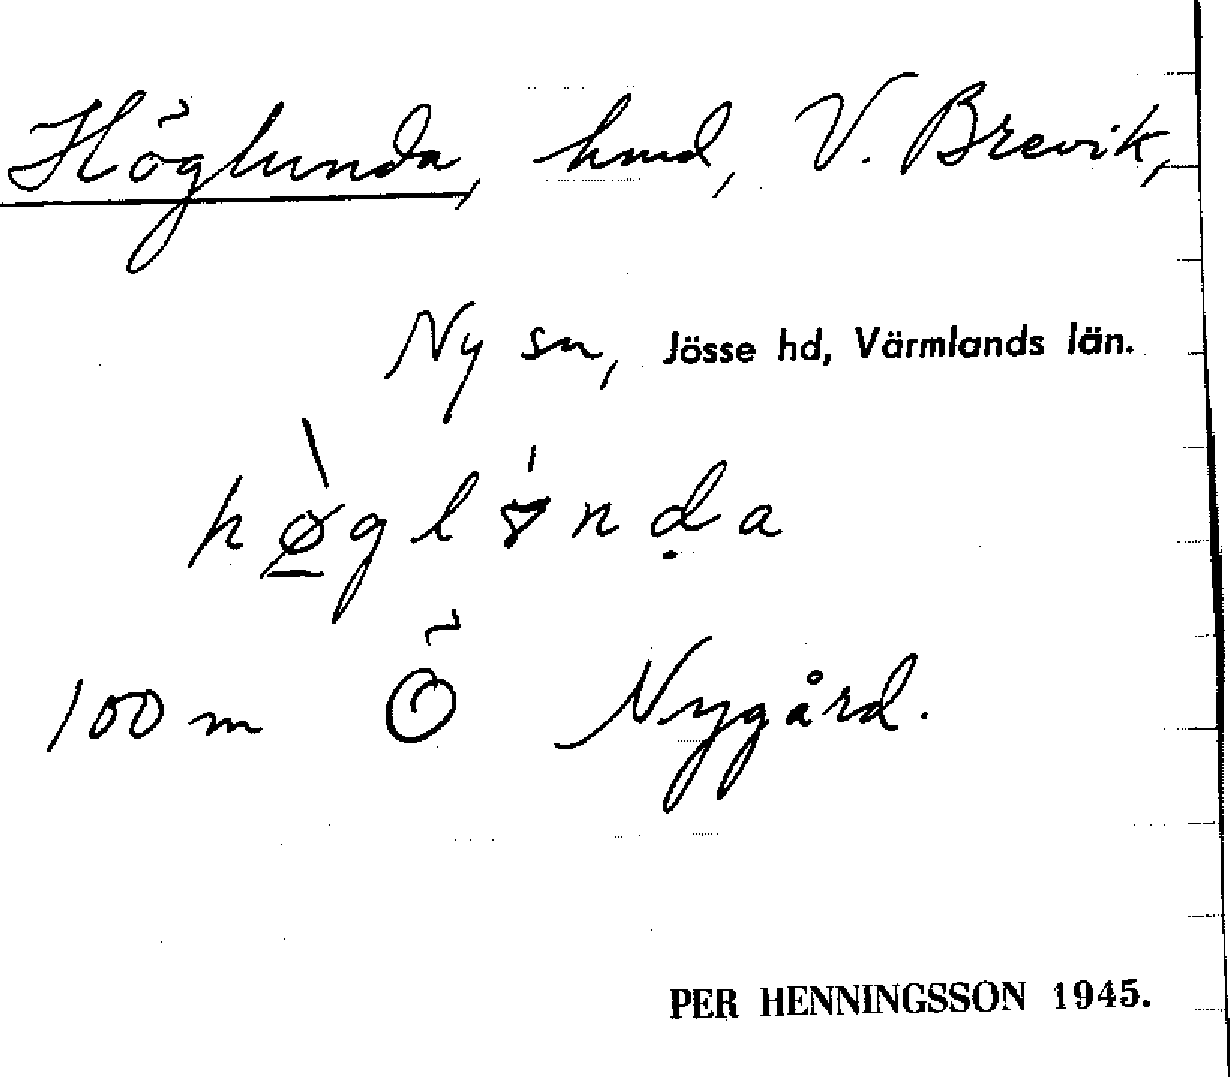 Höglunda, hmd, V. Brevik,
Ny sn, Jösse hd, Värmlands län.
100 m Ö Nygård.
PER HENNINGSSON 1945.